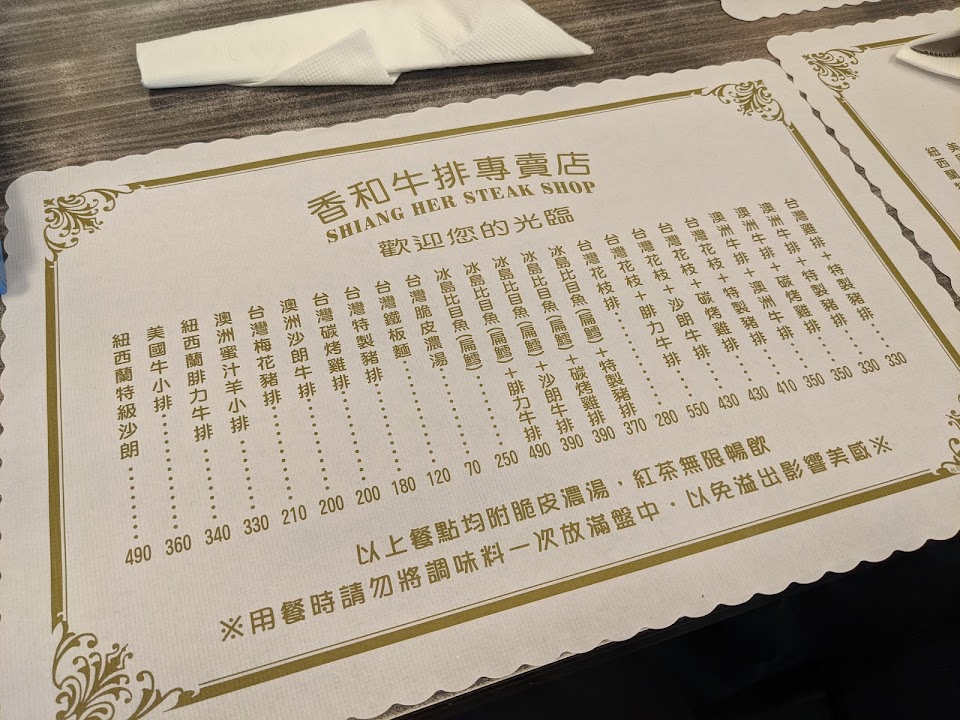 香和牛排專賣店
SHIANG HER STEAK SHOP
歡迎您的光臨
紐西蘭特級沙朗……490
美國牛小排……360
紐西蘭腓力牛排……340
澳洲蜜汁羊小排……330
台灣梅花豬排……210
澳洲沙朗牛排……200
台灣碳烤雞排……200
台灣特製豬排……180
台灣鐵板麵……120
台灣脆皮濃湯……70
冰島比目魚(扁鱈)……250
冰島比目魚(扁鱈)+腓力牛排 490
冰島比目魚(扁鱈)+沙朗牛排 390
冰島比目魚(扁鱈)+碳烤雞排 390
冰島比目魚(扁鱈)+特製豬排 370
台灣花枝排……280
台灣花枝+腓力牛排……550
台灣花枝+沙朗牛排……430
台灣花枝+碳烤雞排……430
台灣花枝+特製豬排……410
澳洲牛排+澳洲牛排……350
澳洲牛排+碳烤雞排……350
澳洲牛排+特製豬排……330
台灣雞排+特製豬排……330
以上餐點均附脆皮濃湯，紅茶無限暢飲
※用餐時請勿將調味料一次放滿盤中，以免溢出影響美感※
紐西蘭